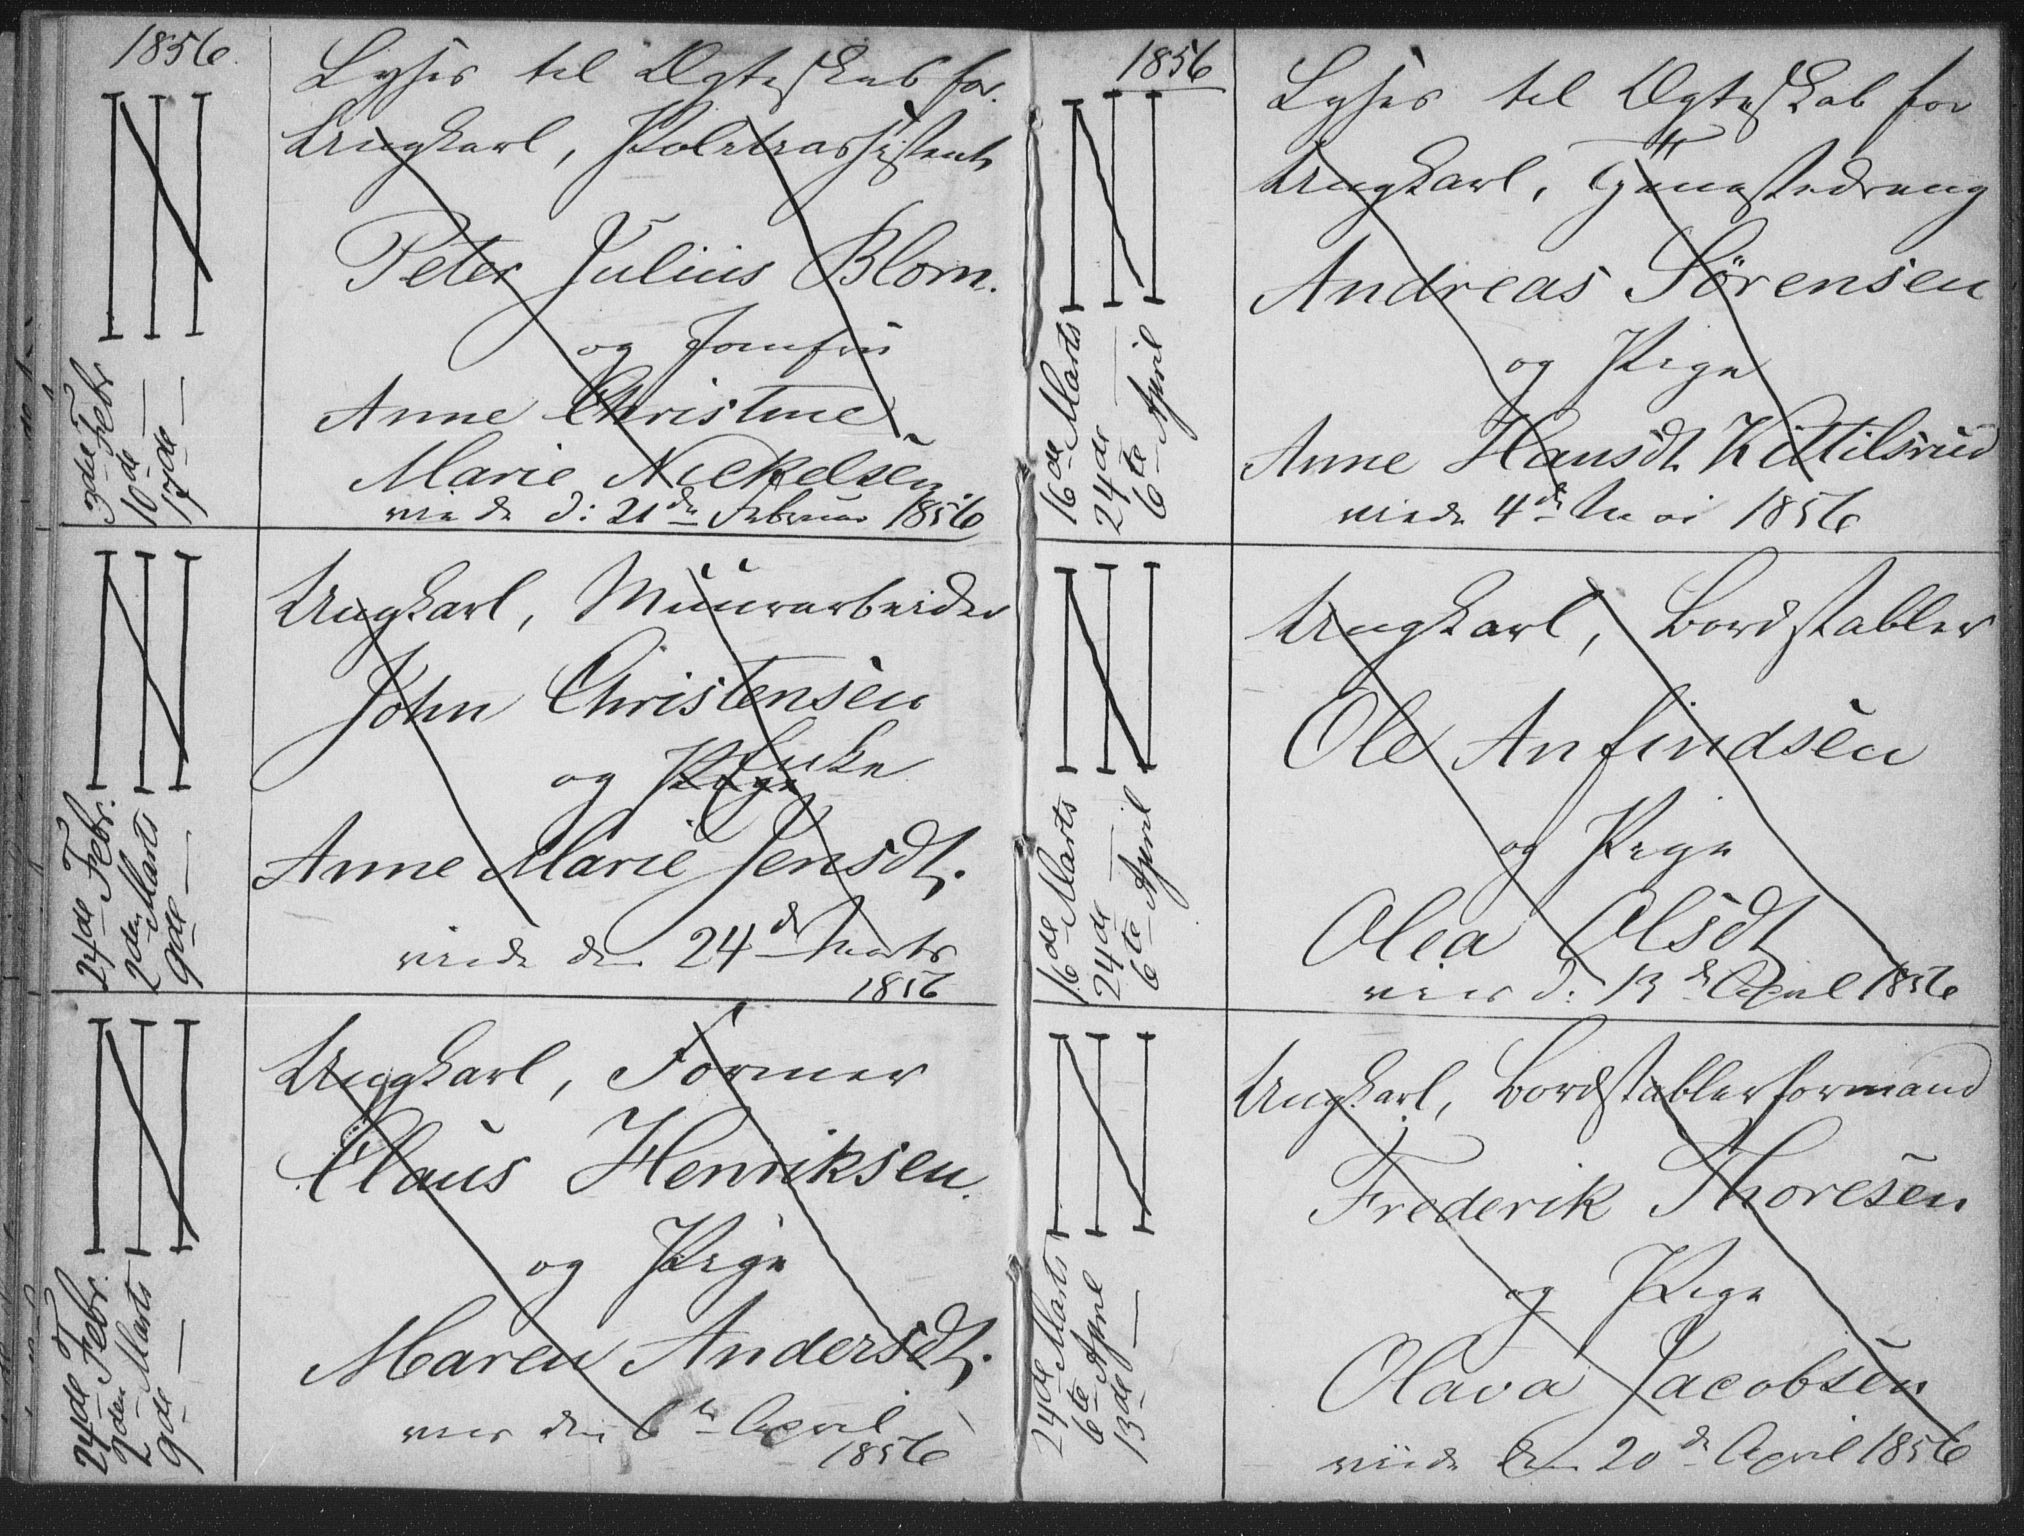 1856.
Lyses til Ægteskab for
Ungkarl, Politiassistent
Peter Julius Blom.
og Jomfru
Anne Christine
Marie Nickelsen.
viede d: 21de Februar 1856
3die Febr
10de —
17de —
Ungkarl, Muurarbeider
John Christensen
og Pige Enke
Anne Marie Jensdt.
viede den 24de Marts
1856
24de Febr.
2den Marts
9de —
Ungkarl, Former
Claus Henriksen.
og Pige
Maren Andersdt.
den 6te April
1856
24de Febr.
2den Marts
9de —
1856
Lyses til Ægteskab for
Ungkarl, Tjenestedreng
Andreas Sørensen
og Pige
Anne Hansdt Kittilsrud
viede 4de Mai 1856
16de Marts
24de —
6te April
Ungkarl, Bordstabler
Ole Anfindsen
og Pige
Olea Olsdt
d: 13de April 1856
16de Marts
24de —
6te April
Ungkarl, Bordstablerformand
Frederik Thoresen
og Pige
Olava Jacobsen
viede den 20de April 1856
24de Marts
6te April
13de —